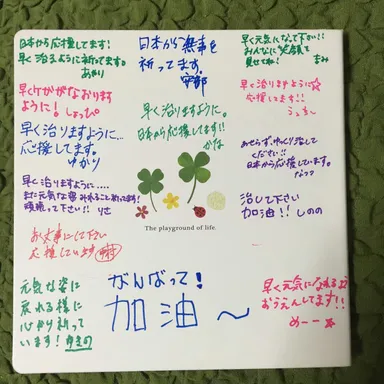 日本から応援してます!
早く治るように祈ってます。
あかり
日本から無事を
祈ってます。
安部
早く元気になって下さい!!
みんなに笑顔を
見せてね!
早くケガがなおります
ように!
早く治りますように。
日本から応援してます!!
かな
早く治りますように☆
応援してます!!
早く治りますように…
応援してます。
ゆかり
あせらずゆっくり治して
ください!!
日本から応援しています。
早く治りますように....
また元気な姿みれること祈ってます!
頑張って下さい!! りさ
治して下さい
加油!! しのの
The playground of life.
お大事にして下さい
応援しています
元気な姿に
戻れる様に
心から祈って
います!
がんばって!
加油~
早く元気になれるよう
おうえんしてます!!
めー